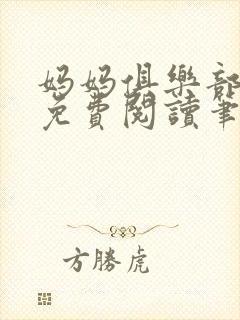 妈妈俱樂部
免費閱讀筆
方勝虎